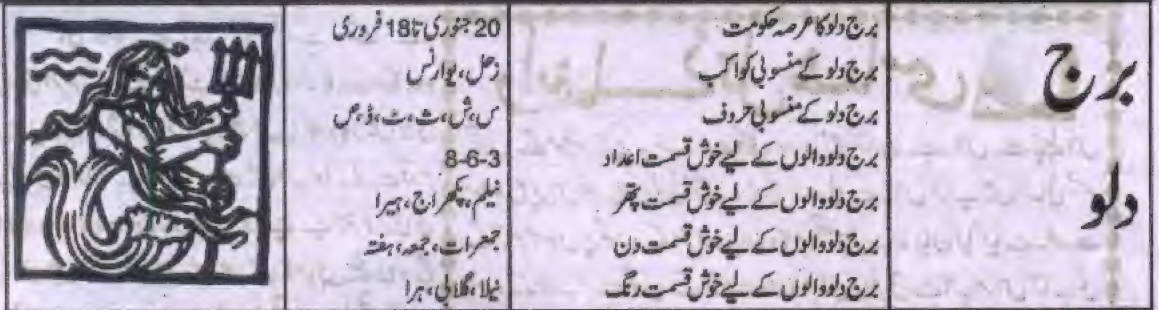 برج
دلو
برج دلو کا عرصہ حکومت 20 جنوری تا 18 فروری
برج دلو کے منسوبی کواکب زحل، یوارنس
برج دلو کے منسوبی حروف س، ش، ث، ٹ، ذ، ص
برج دلو والوں کے لیے خوش قسمت اعداد 3-6-8
برج دلو والوں کے لیے خوش قسمت پتھر نیلم، پکھراج، ہیرا
برج دلو والوں کے لیے خوش قسمت دن جمعرات، جمعہ، ہفتہ
برج دلو والوں کے لیے خوش قسمت رنگ نیلا، گلابی، ہرا